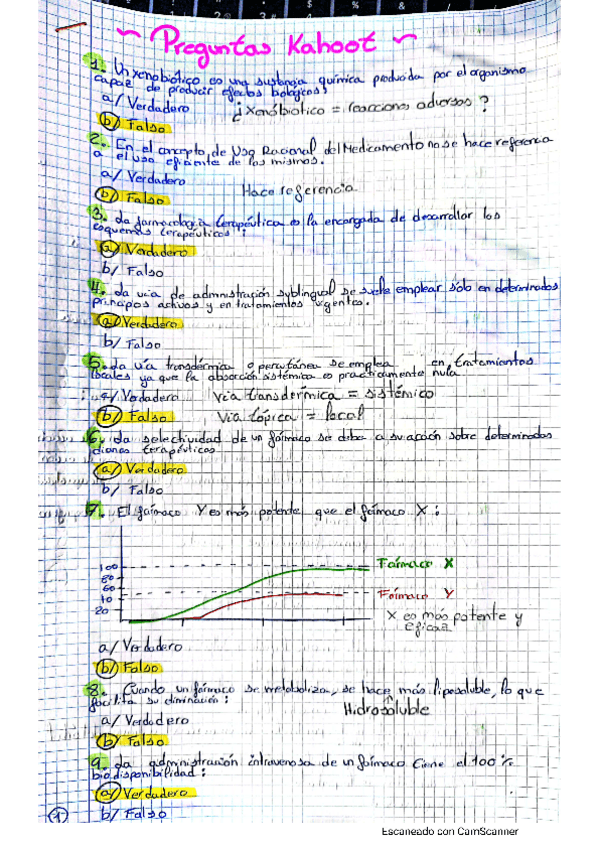 ~ Preguntas Kahoot ~
1. Un xenobiótico es una sustancia química producida por el organismo
capaz de producir efectos biológicos:
a/ Verdadero
¿Xenobiótico = reacciones adversas?
b/ Falso
2. En el concepto de Uso Racional del Medicamento no se hace referencia
a el uso eficiente de los mismos.
a/ Verdadero
Hace referencia
b/ Falso
3. La farmacología terapéutica es la encargada de desarrollar los
esquemas terapéuticos:
a/ Verdadero
b/ Falso
4. La vía de administración sublingual se suele emplear sólo en determinados
principios activos y en tratamientos urgentes.
a/ Verdadero
b/ Falso
5. La vía transdérmica o percutánea se emplea en tratamientos
locales ya que la absorción sistémica es prácticamente nula
a/ Verdadero
vía transdérmica = sistémico
b/ Falso
Vía tópica = local
6. La selectividad de un fármaco se debe a su acción sobre determinadas
dianas terapéuticas
a/ Verdadero
b/ Falso
7. El fármaco Y es más potente que el fármaco X:
100
80
60
40
20
Fármaco X
Fármaco Y
X es más potente y
eficaz
a/ Verdadero
b/ Falso
8. Cuando un fármaco se metaboliza, se hace más liposoluble, lo que
facilita su eliminación:
Hidrosoluble
a/ Verdadero
b/ Falso
9. La administración intravenosa de un fármaco tiene el 100%
biodisponibilidad:
a/ Verdadero
b/ Falso
1
Escaneado con CamScanner